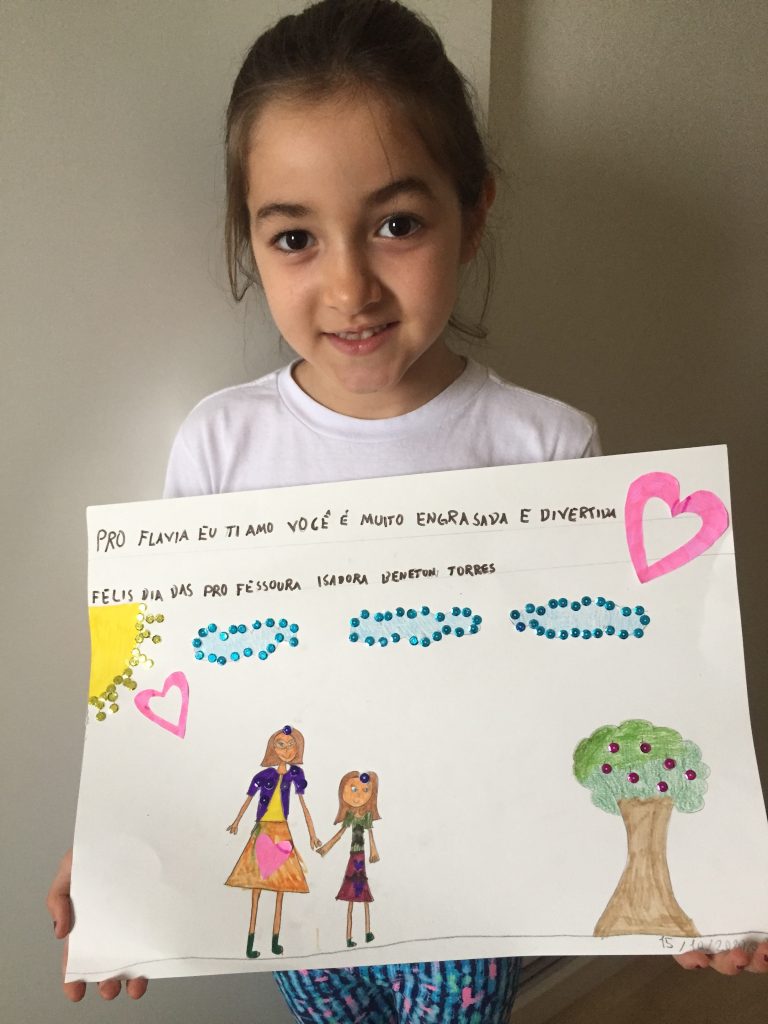 PRO FLAVIA EU TI AMO VOCÊ É MUITO ENGRASADA E DIVERTIDA
FELIS DIA DAS PRO FESSOURA ISADORA BENETON TORRES